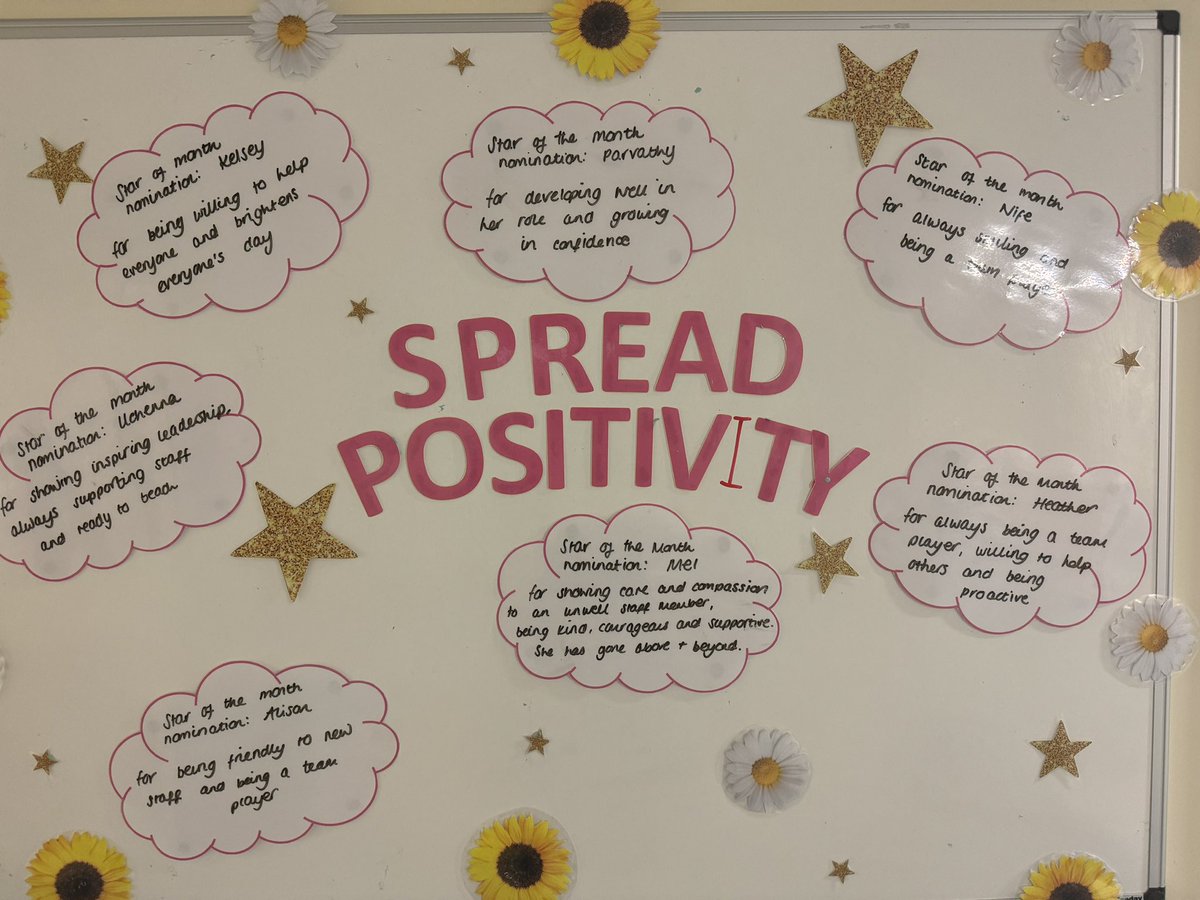 Star of month
nomination: Kelsey
for being willing to help
everyone and brightens
everyone's day
Star of the month
nomination: Parvathy
for developing well in
her role and growing
in confidence
Star of the month
nomination: Nife
for always smiling and
being a team player
SPREAD
POSITIVITY
Star of the month
nomination: Uchenna
for showing inspiring leadership,
always supporting staff
and ready to teach
Star of the Month
nomination: Mel
for showing care and compassion
to an unwell staff member,
being kind, courageous and supportive.
She has gone above + beyond.
Star of the Month
nomination: Heather
for always being a team
player, willing to help
others and being
proactive
Star of the month
nomination: Alison
for being friendly to new
staff and being a team
player